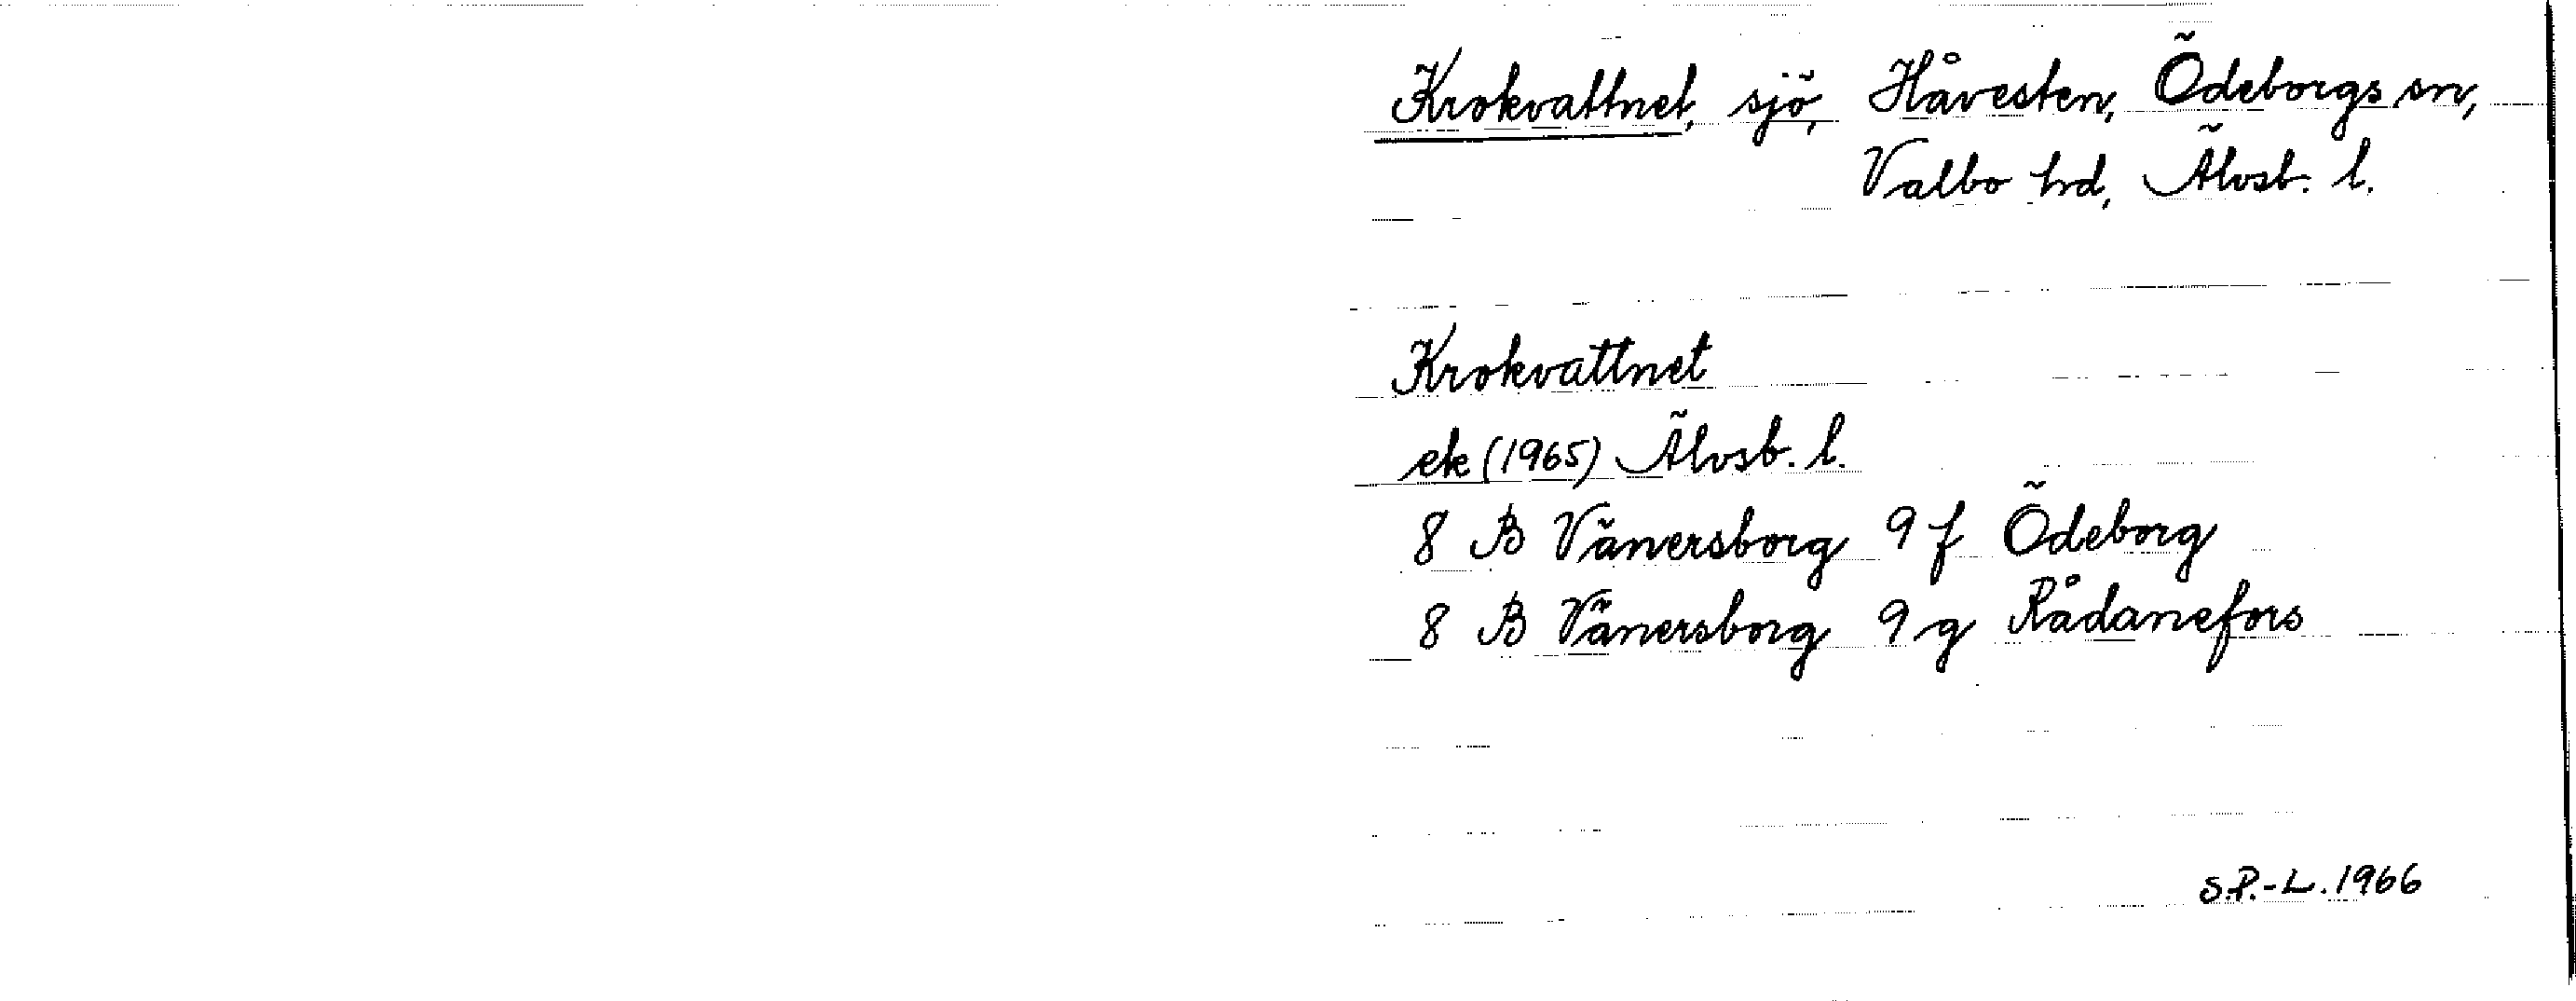 Krokvattnet, sjö, Håvesten, Ödeborgs sn,
Valbo hd, Älvsb. l.
Krokvattnet
ek (1965) Älvsb. l.
8 B Vänersborg 9 f Ödeborg
8 B Vänersborg 9 g Rådanefors
S.P.-L. 1966